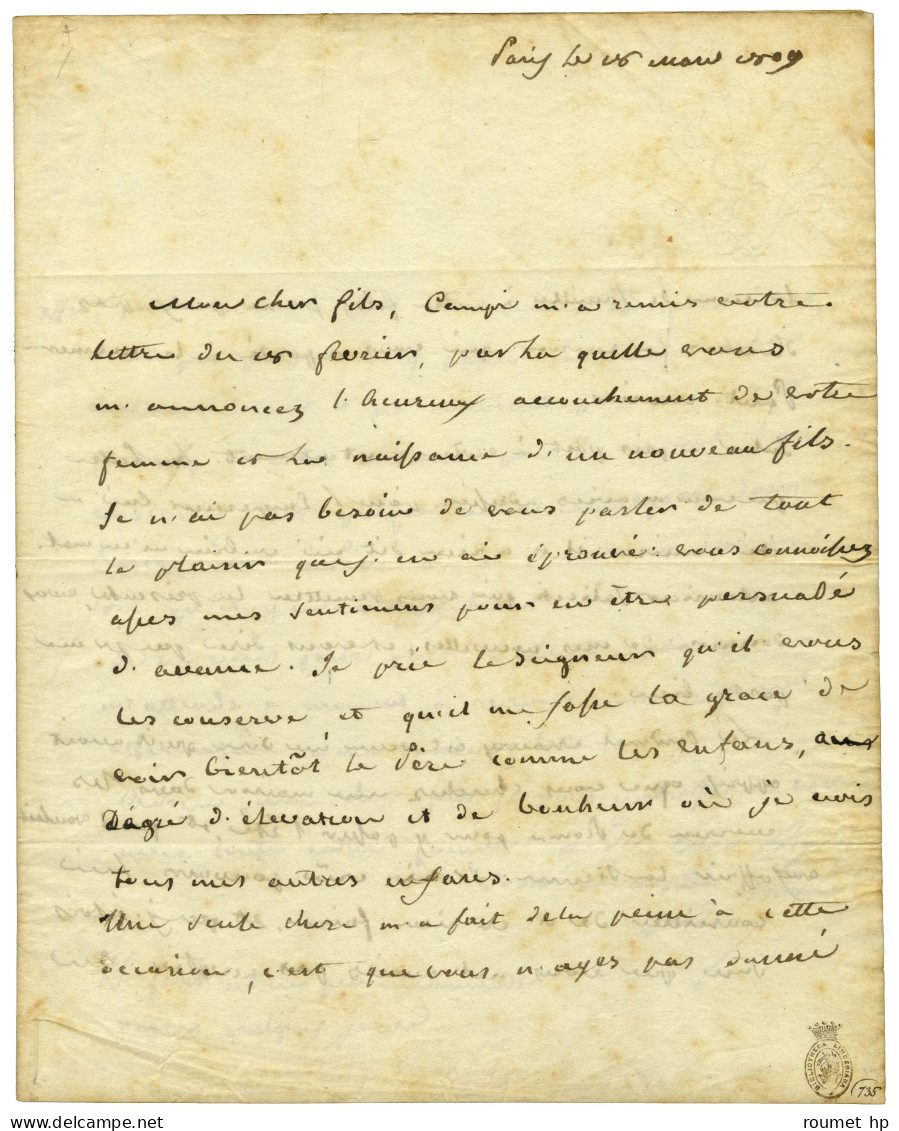 Paris le 16 Mars 1809
Mon cher fils, Campi m'a remis votre
lettre du 16 fevrier, par la quelle vous
m'annoncez l'heureux accouchement de votre
femme et la naissance d'un nouveau fils.
Je n'ai pas besoin de vous parler de tout
le plaisir que j'en ai éprouvé: vous connoissez
assez mes sentimens pour en être persuadé
d'avance. Je prie le Seigneur qu'il vous
les conserve et qu'il me fasse la grace de
voir bientôt le Père comme les enfans, au
Dégré d'élevation et de bonheur où je vois
tous mes autres enfans.
Une seule chose m'a fait de la peine à cette
occasion, c'est que vous n'ayez pas donné
BIBLIOTHECA LINDESIANA
735
www.delcampe.net
roumet hp